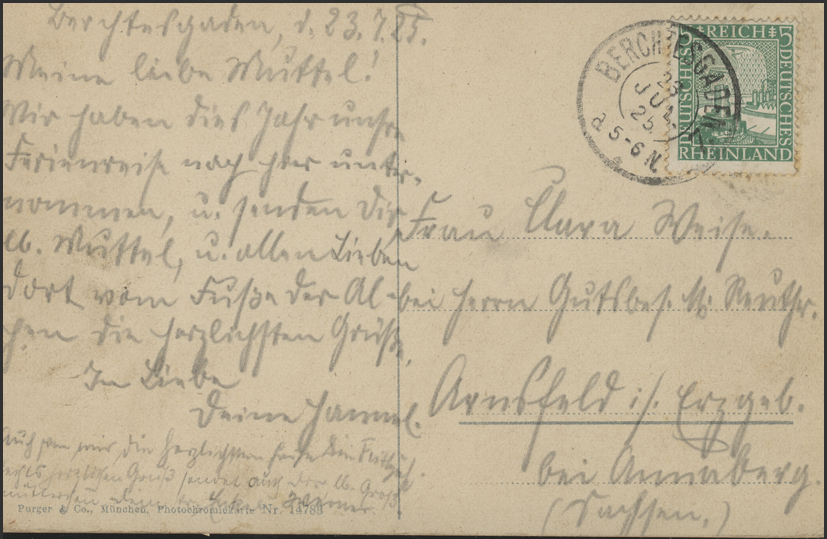 Berchtesgaden, d. 23.7.25.
Meine liebe Muttel!
Wir haben dies Jahr unsre
Ferienreise nach hier unter-
nommen, u. senden Dir,
lb. Muttel, u. allen Lieben
dort vom Fuße der Al-
pen die herzlichsten Grüße.
In Liebe
Deine Hannel.
Auch von mir die herzlichsten
herzlichen Gruß sendet auch der lb. Groß-
Werner.
Purger & Co., München, Photochromiekarte Nr. 14783
BERCHTESGADEN
23
JUL
25
5-6 N.
DEUTSCHES REICH 5 DEUTSCHES
5
RHEINLAND
Frau Clara Weise.
bei Herrn Gutsbes. M. Reuther.
Arnsfeld i/. Erzgeb.
bei Annaberg.
(Sachsen.)